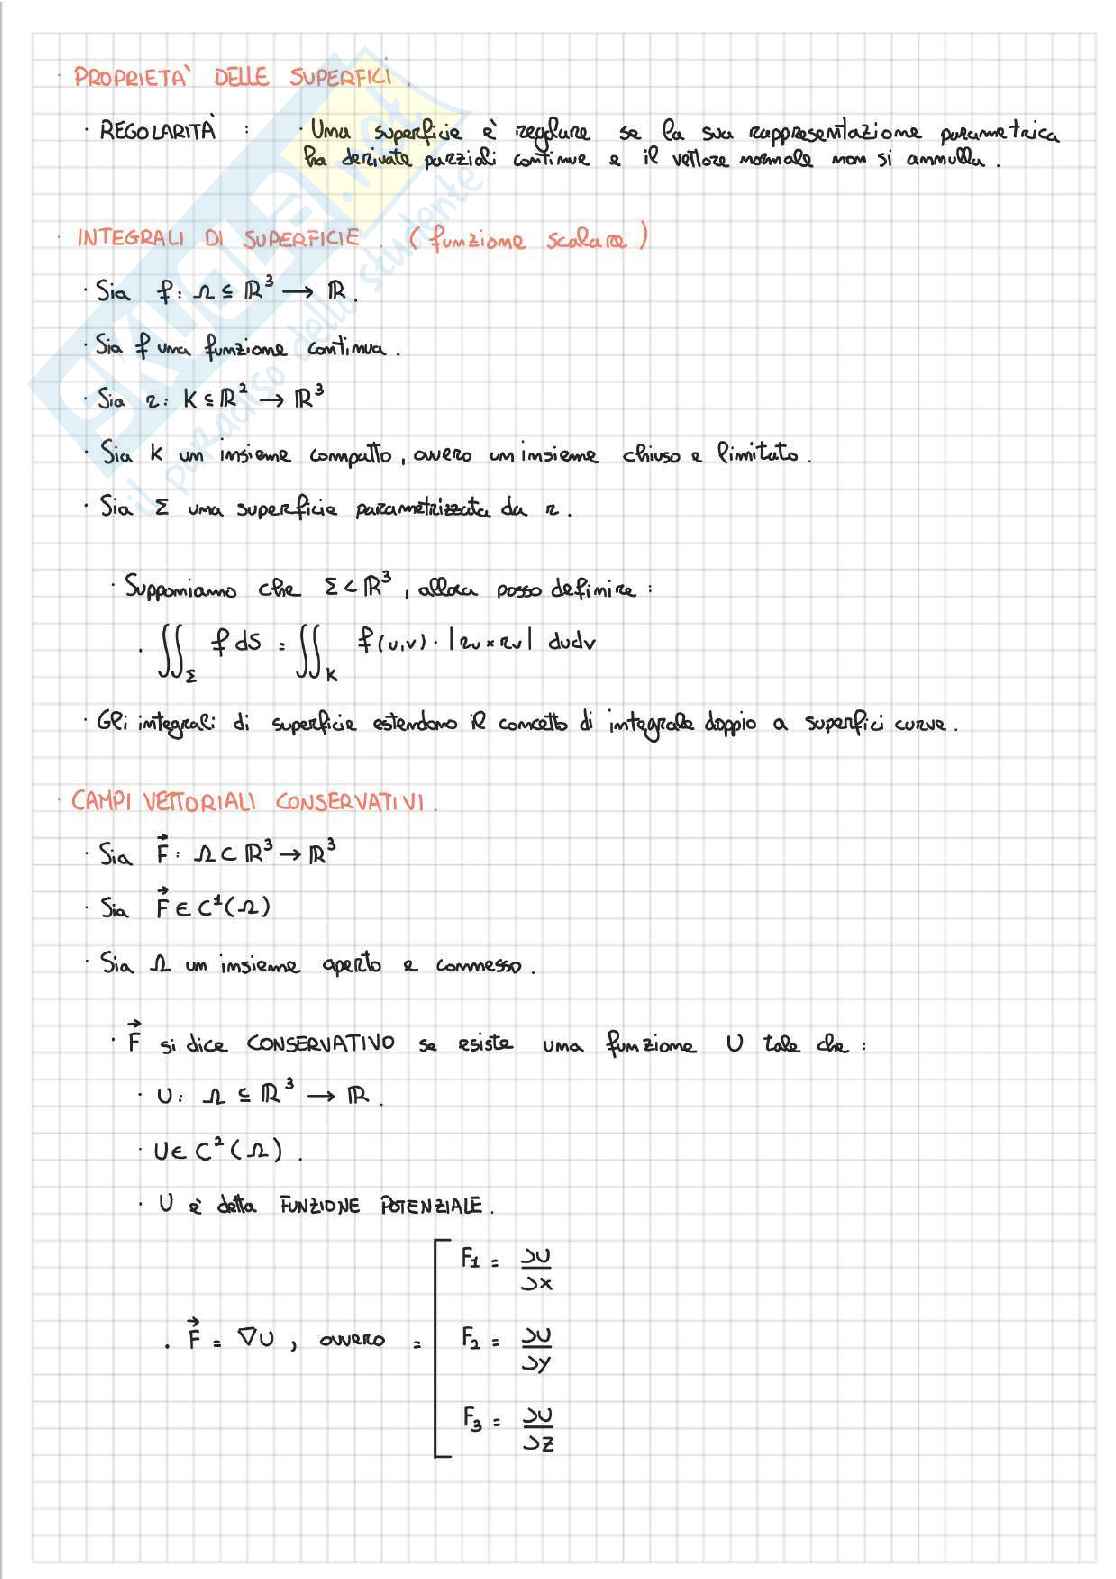 · PROPRIETA' DELLE SUPERFICI.
· REGOLARITÀ : · Una superficie è regolare se la sua rappresentazione parametrica
ha derivate parziali continue e il vettore normale non si annulla.
· INTEGRALI DI SUPERFICIE. (funzione scalare)
· Sia f: Ω ⊆ ℝ³ → ℝ.
· Sia f una funzione continua.
· Sia r: K ⊆ ℝ² → ℝ³
· Sia K un insieme compatto, ovvero un insieme chiuso e limitato.
· Sia Σ una superficie parametrizzata da r.
· Supponiamo che Σ ⊂ ℝ³, allora posso definire:
· ∬_Σ f dS = ∬_K f(u,v) · |ru × rv| dudv
· Gli integrali di superficie estendono il concetto di integrale doppio a superfici curve.
· CAMPI VETTORIALI CONSERVATIVI.
· Sia F⃗: Ω ⊂ ℝ³ → ℝ³
· Sia F⃗ ∈ C¹(Ω)
· Sia Ω un insieme aperto e connesso.
· F⃗ si dice CONSERVATIVO se esiste una funzione U tale che:
· U: Ω ⊆ ℝ³ → ℝ.
· U ∈ C²(Ω).
· U è detta FUNZIONE POTENZIALE.
F₁ = ∂U/∂x
· F⃗ = ∇U, ovvero = F₂ = ∂U/∂y
F₃ = ∂U/∂z
SKUOLA.net
il paradiso dello studente